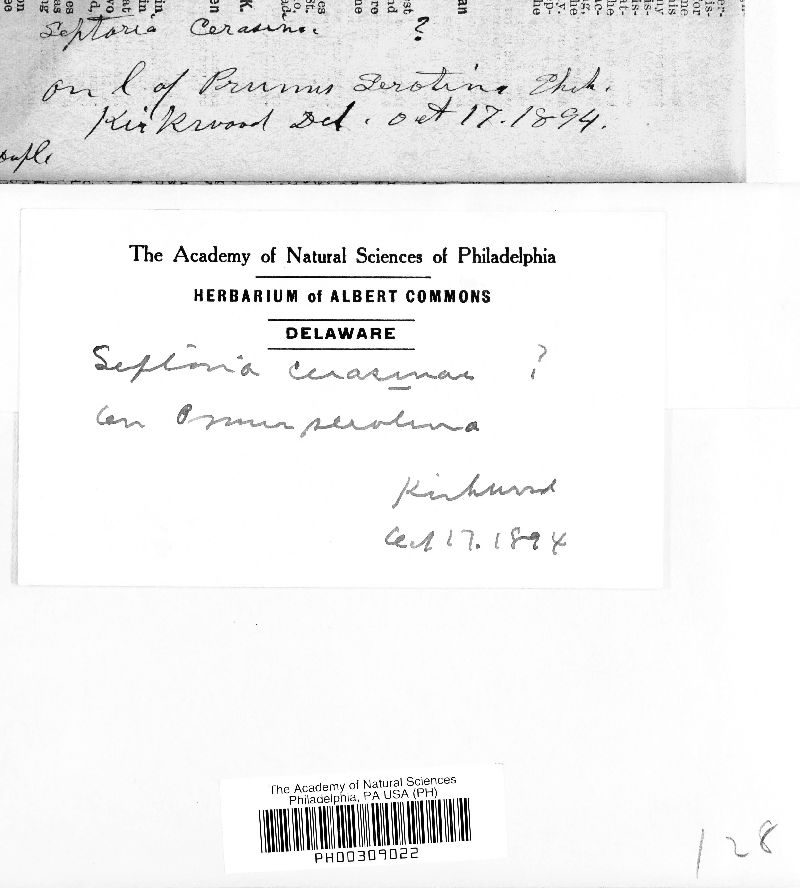 Septoria Cerasina. ?
on l of Prunus Serotina Ehrh.
Kirkwood Del. Oct 17. 1894.
The Academy of Natural Sciences of Philadelphia
HERBARIUM of ALBERT COMMONS
DELAWARE
Septoria cerasinae ?
on Prunus serotina
Kirkwood
Oct 17. 1894
The Academy of Natural Sciences
Philadelphia, PA USA (PH)
PH00309022
128